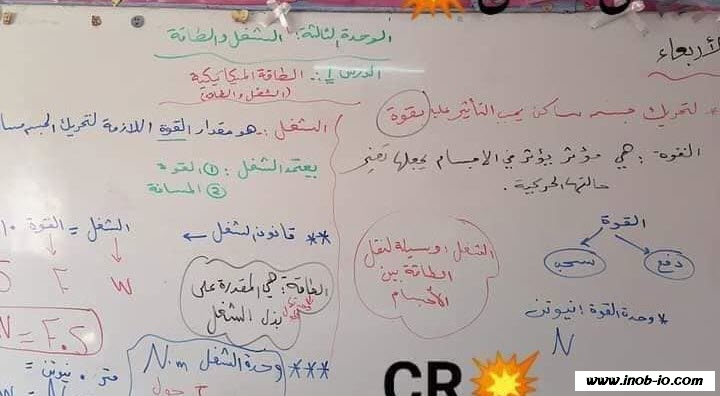 الأربعاء
الوحدة الثالثة: الشغل والطاقة
الدرس 1: الطاقة الميكانيكية
(الشغل والطاقة)
* لتحريك جسم ساكن يجب التأثير عليه بقوة
القوة: هي مؤثر يؤثر في الأجسام يجعلها تغير
حالتها الحركية.
القوة
دفع
سحب
* وحدة القوة: نيوتن
N
الشغل: وسيلة لنقل
الطاقة بين
الأجسام
الشغل: هو مقدار القوة اللازمة لتحريك الجسم
يعتمد الشغل: ① القوة
② المسافة
** قانون الشغل ←
الشغل = القوة
W
F
S
= F.S
الطاقة: هي المقدرة على
بذل الشغل
*** وحدة الشغل N.m
= نيوتن . متر
جول J
CR
www.inob-io.com